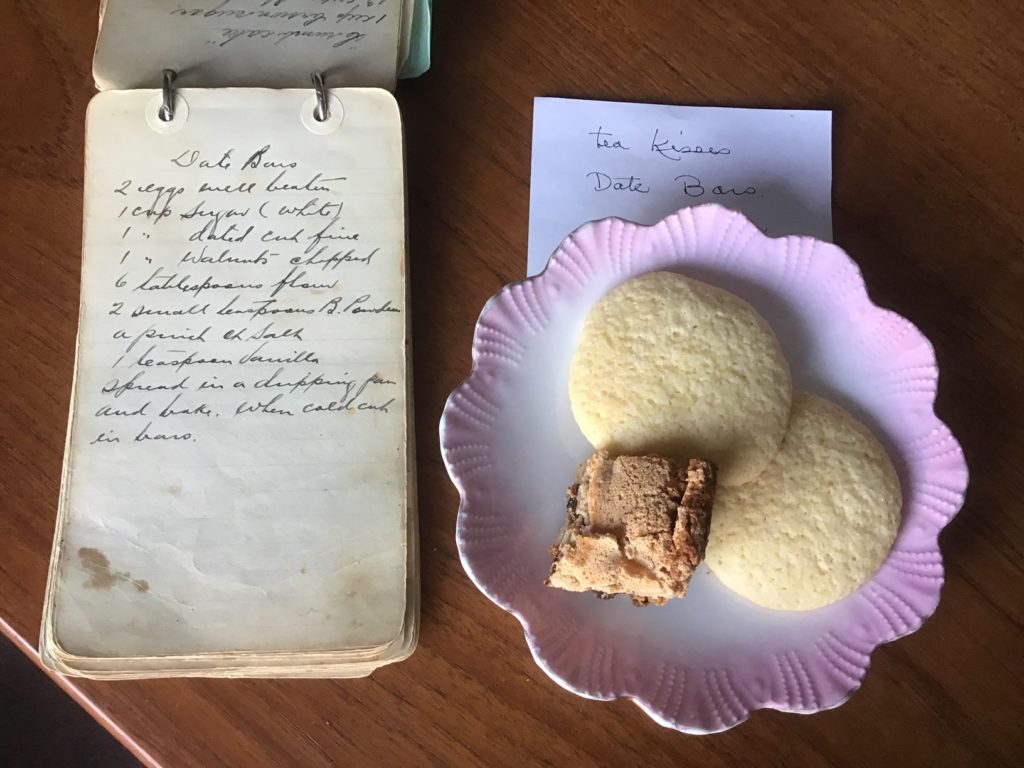 "Crumb cake"
1 cup brown sugar
Date Bars
2 eggs well beaten
1 cup sugar (white)
1 " dated cut fine
1 " Walnuts chopped
6 tablespoons flour
2 small teaspoons B. Powder
a pinch of salt
1 teaspoon vanilla
spread in a dripping pan
and bake. When cold cut
in bars.
tea Kisses
Date Bars.